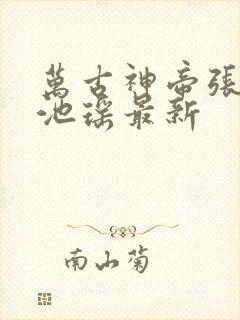 萬古神帝張
池瑤最新
南山菊